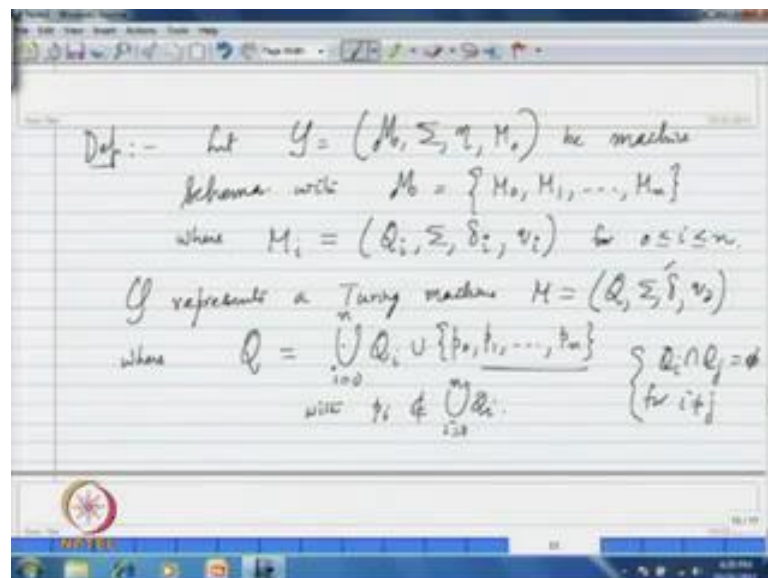 Def:- Let 𝒴 = (ℳ, Σ, η, M₀) be machine
Schema with ℳ = { M₀, M₁, ..., Mₙ }
where Mᵢ = (Qᵢ, Σ, δᵢ, qᵢ) for 0 ≤ i ≤ n.
𝒴 represents a Turing machine M = (Q, Σ, δ, q₀)
where Q = ⋃ⁿᵢ₌₀ Qᵢ ∪ {p₀, p₁, ..., pₙ} { Qᵢ ∩ Qⱼ = ϕ
with pᵢ ∉ ⋃ⁿᵢ₌₀ Qᵢ. for i ≠ j
NPTEL